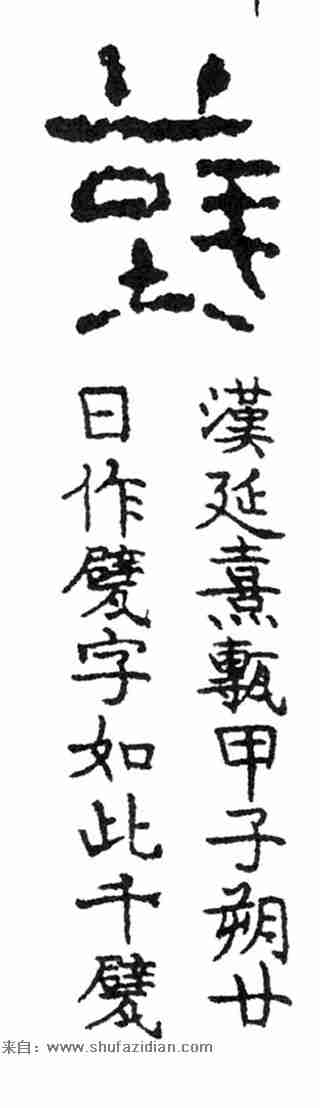 漢延熹甎甲子朔廿
日作甓字如此千甓
来自：www.shufazidian.com